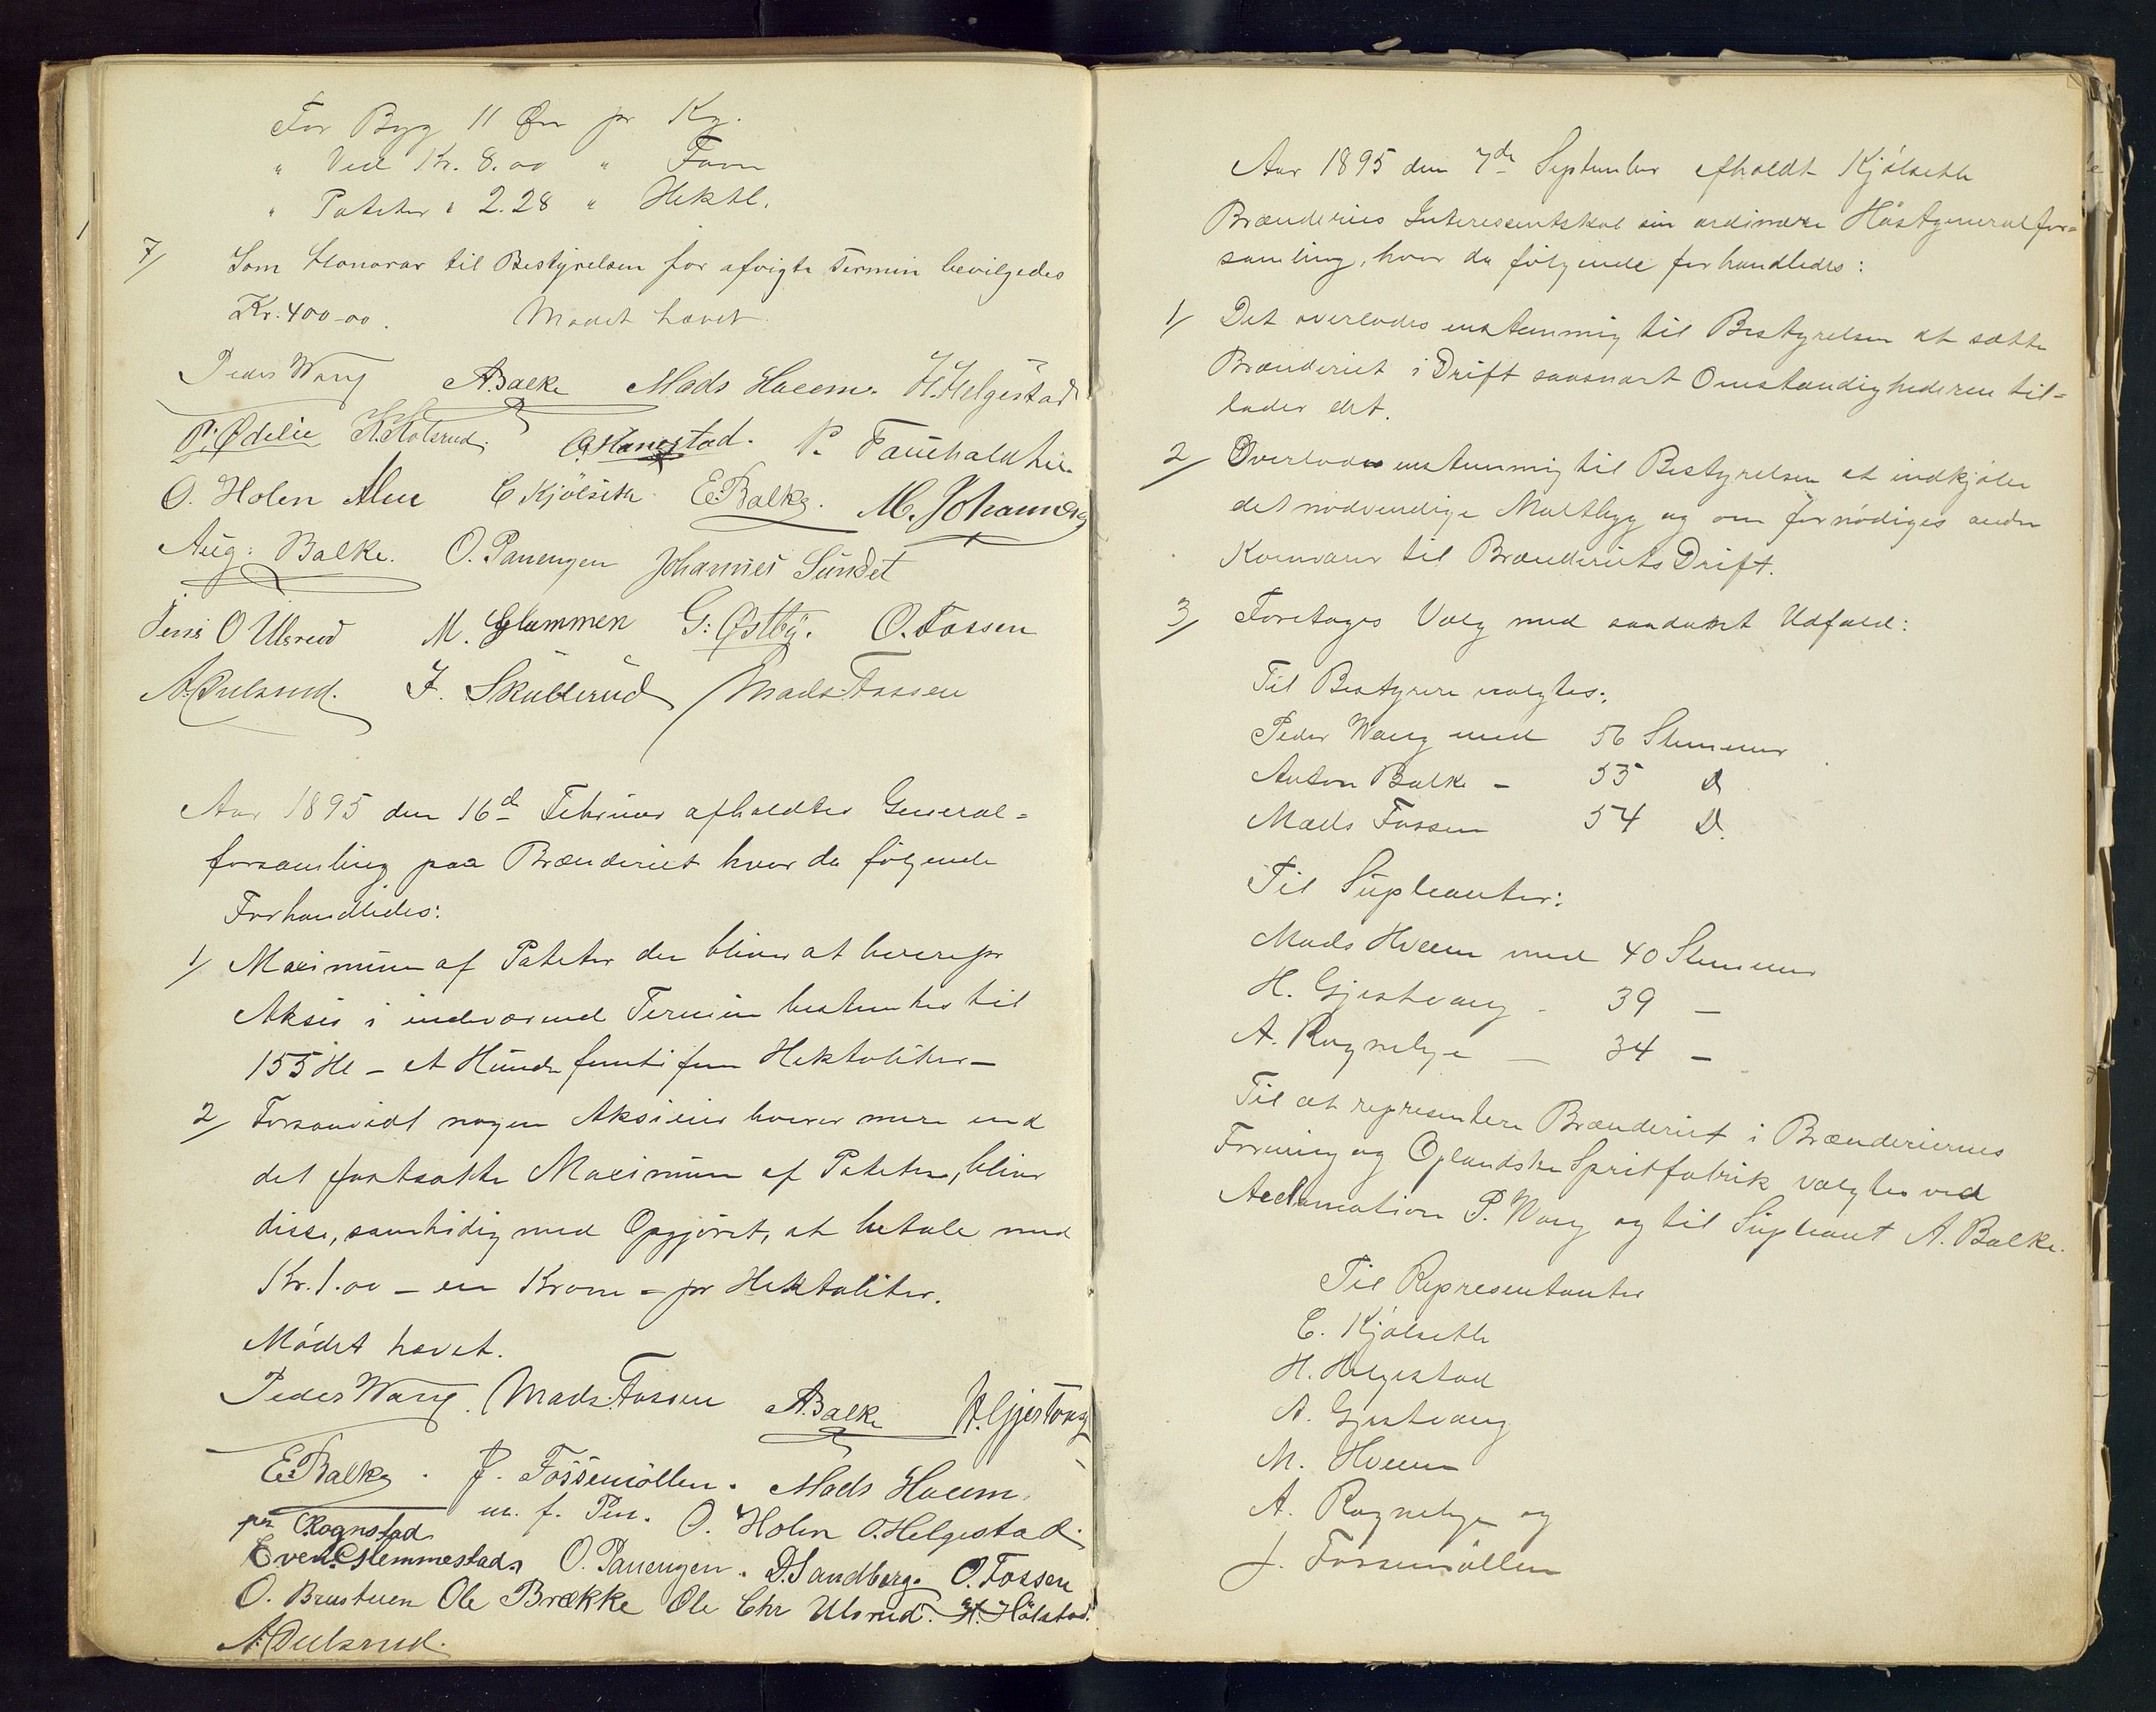 For Byg 11 Øre pr Kg.
" Ved Kr. 8.00 " Favn
" Poteter " 2.28 " Hektl.
7/ Som Honorar til Bestyrelsen for afvigte Termin bevilgedes
Kr. 400-00. Mødet hævet.
Peder Wang A Balke Mads Hveem. H. Helgestad
P. Ødelie K. Kolsrud. O. Hanestad. P.
O. Holen C Kjölseth E. Balke. M. Johannesen
Aug: Balke. O. Panengen Johannes Sundet
Jens O Ulsrud M. Glemmen G: Østby. O. Fossen
A. Dulsrud. J. Skullerud Mads Fossen
Aar 1895 den 16de Februar afholdtes General-
forsamling paa Brænderiet hvor da følgende
Forhandledes:
1/ Maximum af Poteter der bliver at levere pr
Aksie i indeværende Termin bestemtes til
155 Hl – et Hundre femti fem Hektoliter –
2/ Forsaavidt nogen Aksieeier leverer mere end
det fastsatte Maximum af Poteter, bliver
disse, samtidig med Opgjöret, at betale med
Kr. 1.00 – en Krone – pr Hektoliter.
Mödet hævet.
Peder Wang. Mads Fossen A Balke H. Gjestvang
E. Balke. J. Fossemöllen. Mads Hveem.
pr Rognstad m. f. Pen. O. Holen O. Helgestad.
Even Glemmestad. O. Panengen. D. Sandberg. O. Fossen
O. Brustuen Ole Brække Ole Chr Ulsrud. H. Hölstad.
A. Dulsrud.
Aar 1895 den 7de September afholdt Kjölseth
Brænderies Interessentskab sin ordinære Höstgeneralfor=
samling, hvor da følgende forhandledes:
1/ Det overlodes enstemmig til Bestyrelsen at sætte
Brænderiet i Drift saasnart Omstændighederen til=
lader det.
2/ Overlodes enstemmig til Bestyrelsen at indkjøbe
det nødvendige Maltbyg og om fornödiges andre
Kornvarer til Brænderiets Drift.
3/ Foretoges Valg med saadant Udfald:
Til Bestyrere valgtes:
Peder Wang med 56 Stemmer
Anton Balke – 55 D
Mads Fossen 54 D.
Til Supleanter:
Mads Hveem med 40 Stemmer
H. Gjestvang – 39 –
A. Rognelye – 34 –
Til at representere Brænderiet i Brænderiernes
Forening og Oplandske Spritfabrik valgtes ved
Acclamation P. Wang og til Supleant A. Balke.
Til Representanter
C. Kjølseth
H. Helgestad
A. Gjestvang
M. Hveem
A. Rognelye og
J. Fossemöllen